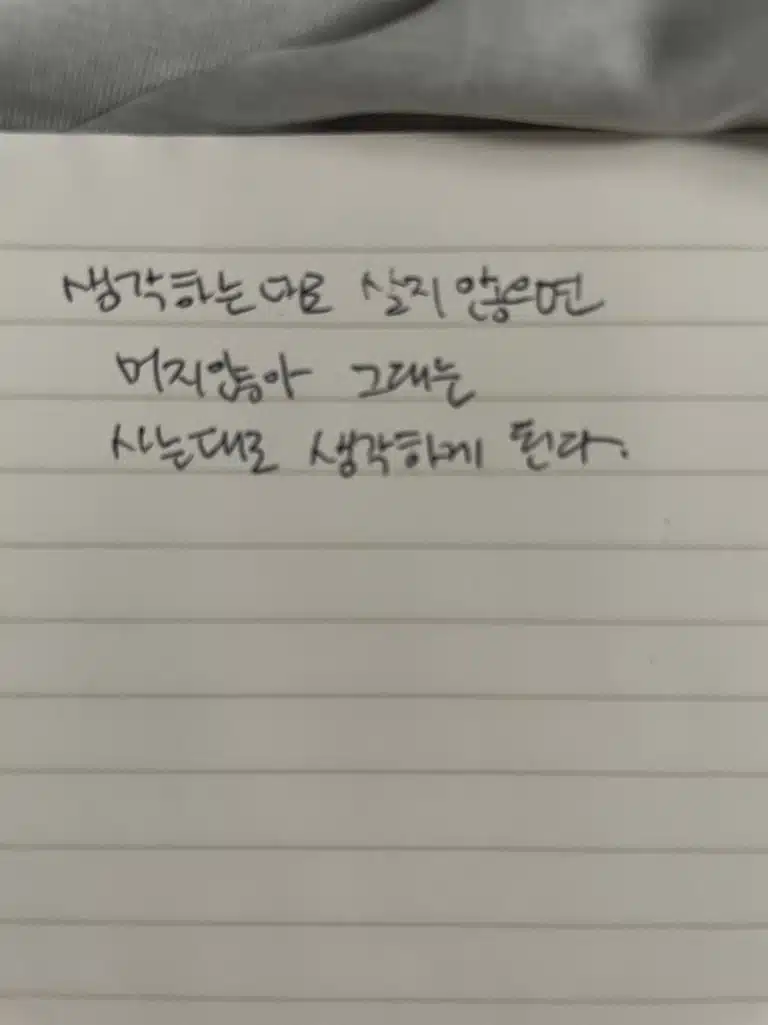 생각하는 대로 살지 않으면
머지않아 그대는
사는대로 생각하게 된다.